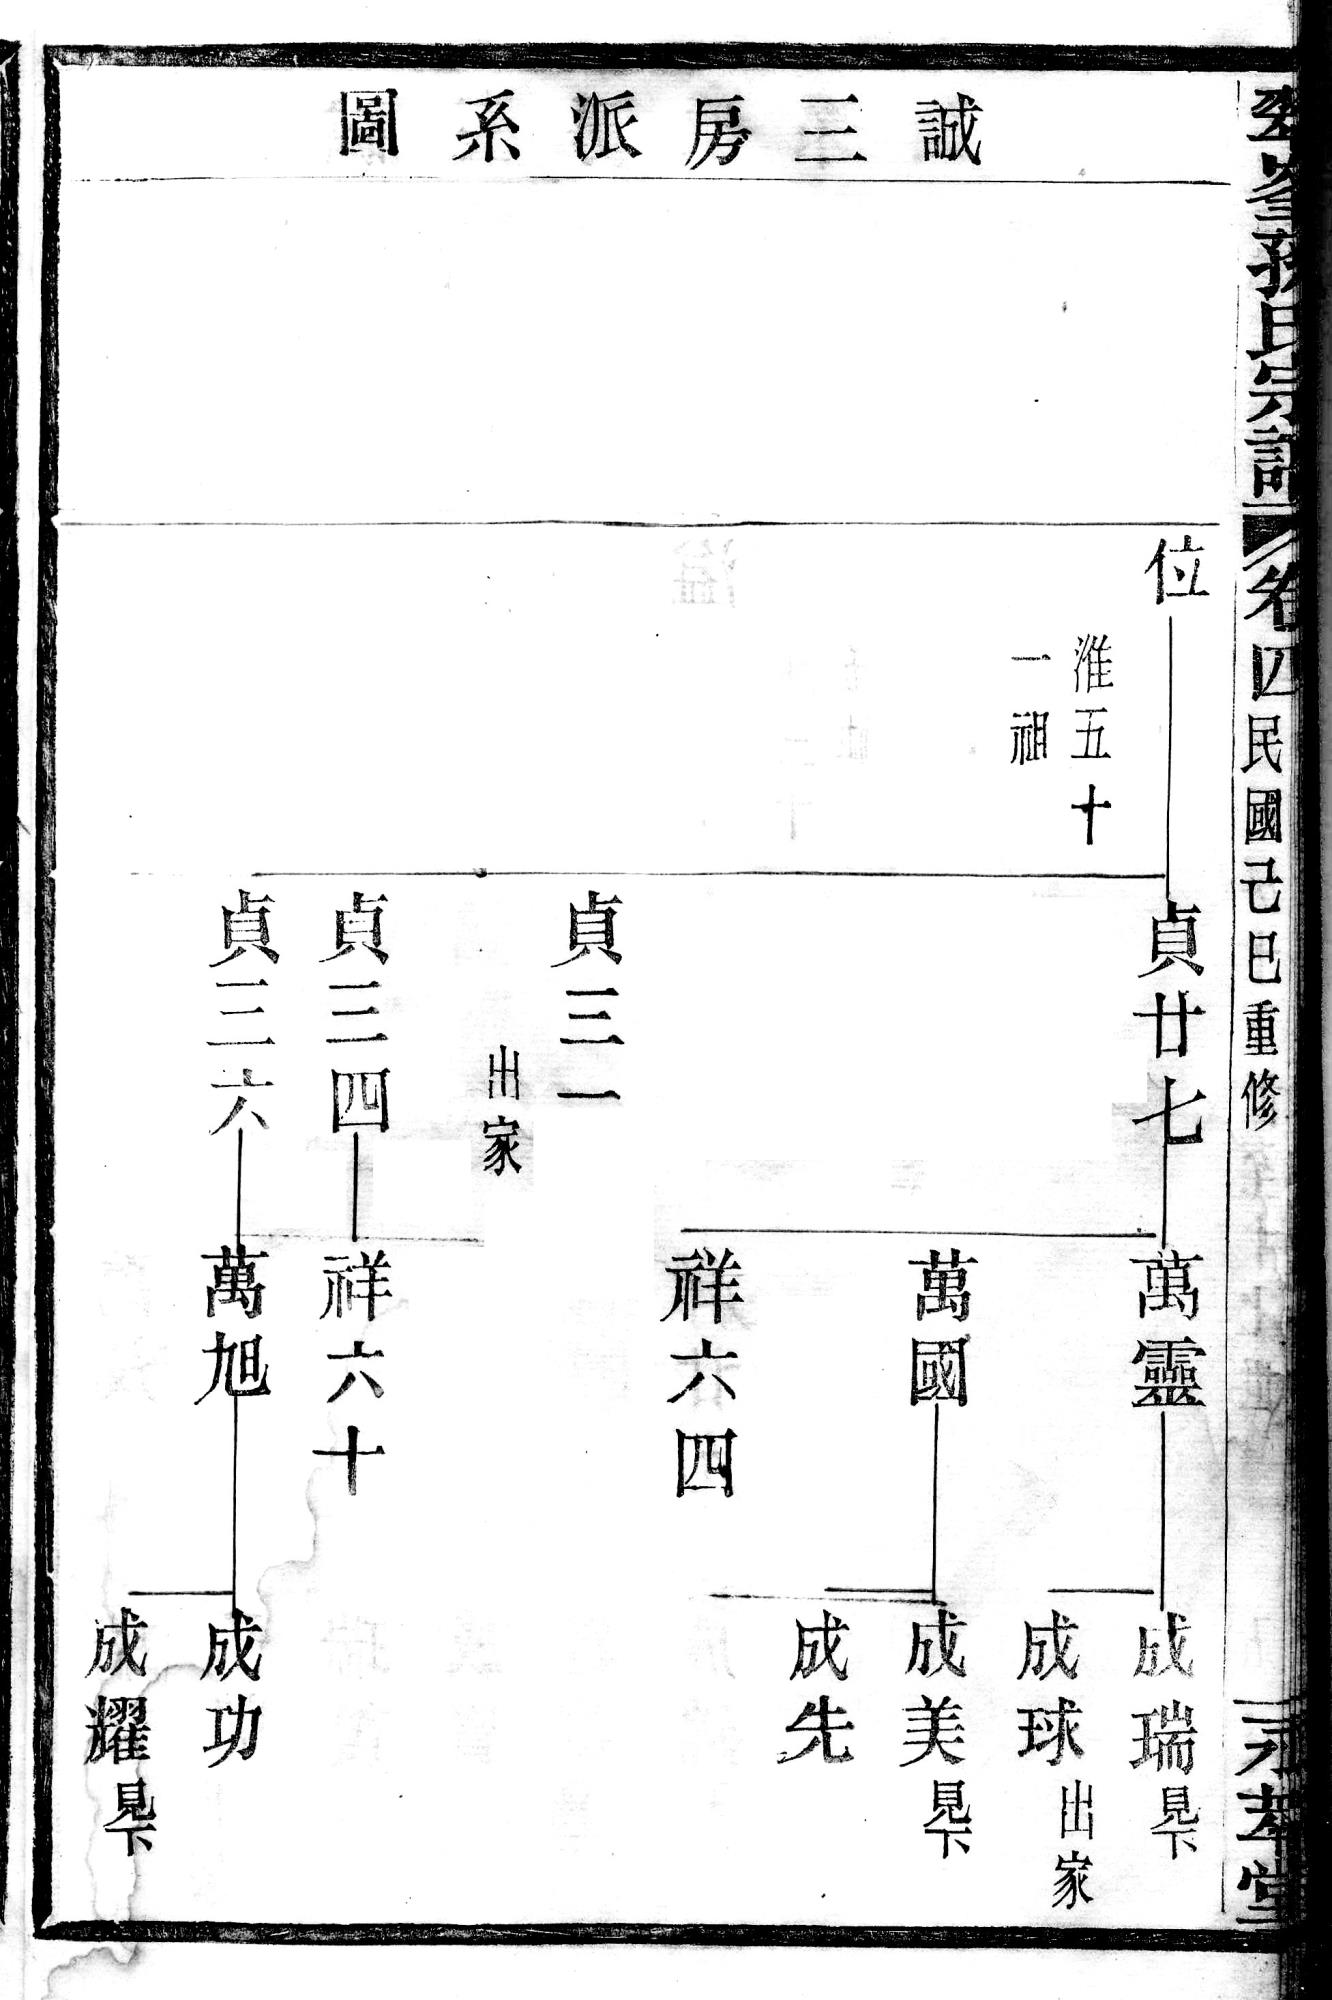 誠三房派系圖
孫氏宗譜
卷四
民國己巳重修
永萃堂
位
淮五十
一祖
貞廿七
貞三一
出家
貞三四
貞三六
萬靈
萬國
祥六四
祥六十
萬旭
成瑞
見下
成球
出家
成美
見下
成先
成功
成耀
見下